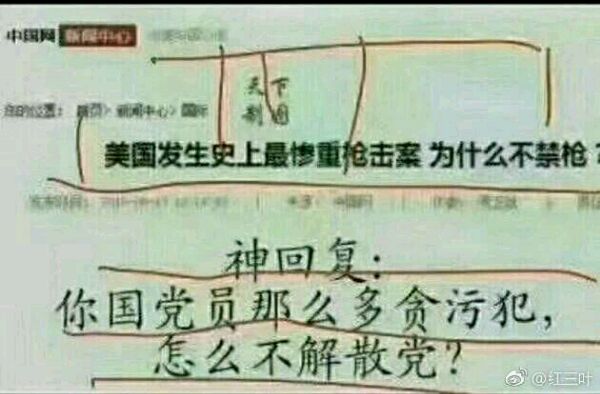 中国网 新闻中心
天下
制图
您的位置： 首页> 新闻中心> 国际
美国发生史上最惨重枪击案 为什么不禁枪？
神回复：
你国党员那么多贪污犯，
怎么不解散党？
@红三叶